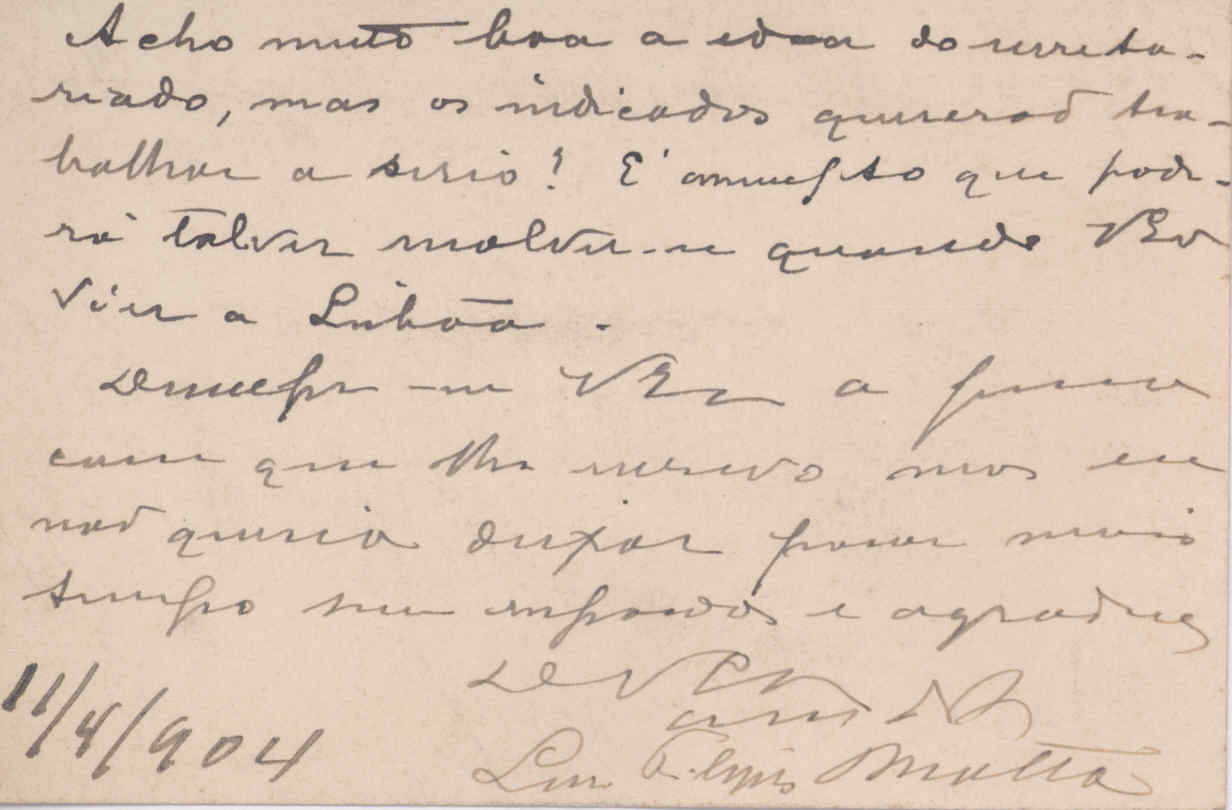 Acho muito boa a idea do secreta-
riado, mas os indicados quererão tra-
balhar a serio? É assumpto que pode-
rá talvez resolver-se quando VExª
vier a Lisboa.
Desculpe-me VExª a forma
com que lhe escrevo mas eu
não queria deixar passar mais
tempo sem responder e agradecer
De VExª
Luiz Filippe Matta
11/4/904